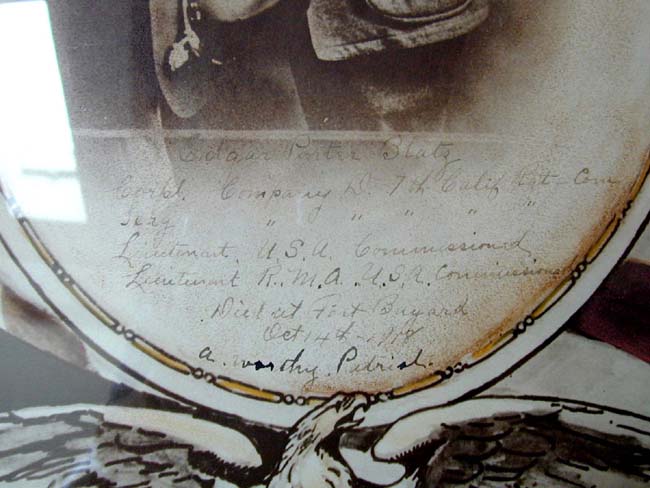 Edgar Porter Blatz
Corpl. Company D. 7th Calif Rgt - Com
Serg " " " " "
Lieutenant, U.S.A. Commissioned
Lieutenant R.M.A. U.S.A. Commissioned
Died at Fort Bayard
Oct 14th, 1918
a worthy Patriot.